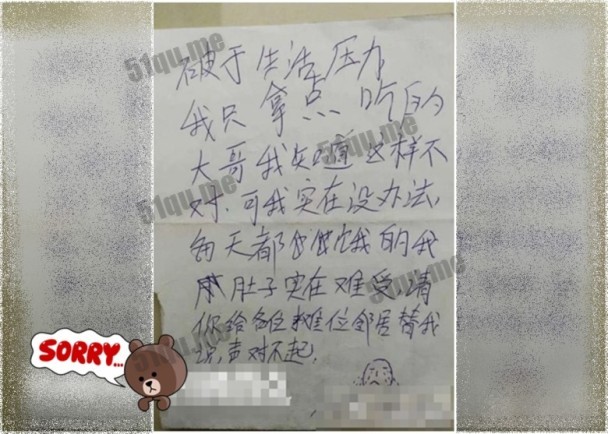 破于生活压力
我只拿点吃的
大哥我知道这样不
对、可我实在没办法
每天都 饿的我
肚子实在难受,请
你给各位 位邻居替我
说,声对不起,
SORRY...
51qu.me
51qu.me
51qu.me
51qu.me
51qu.me